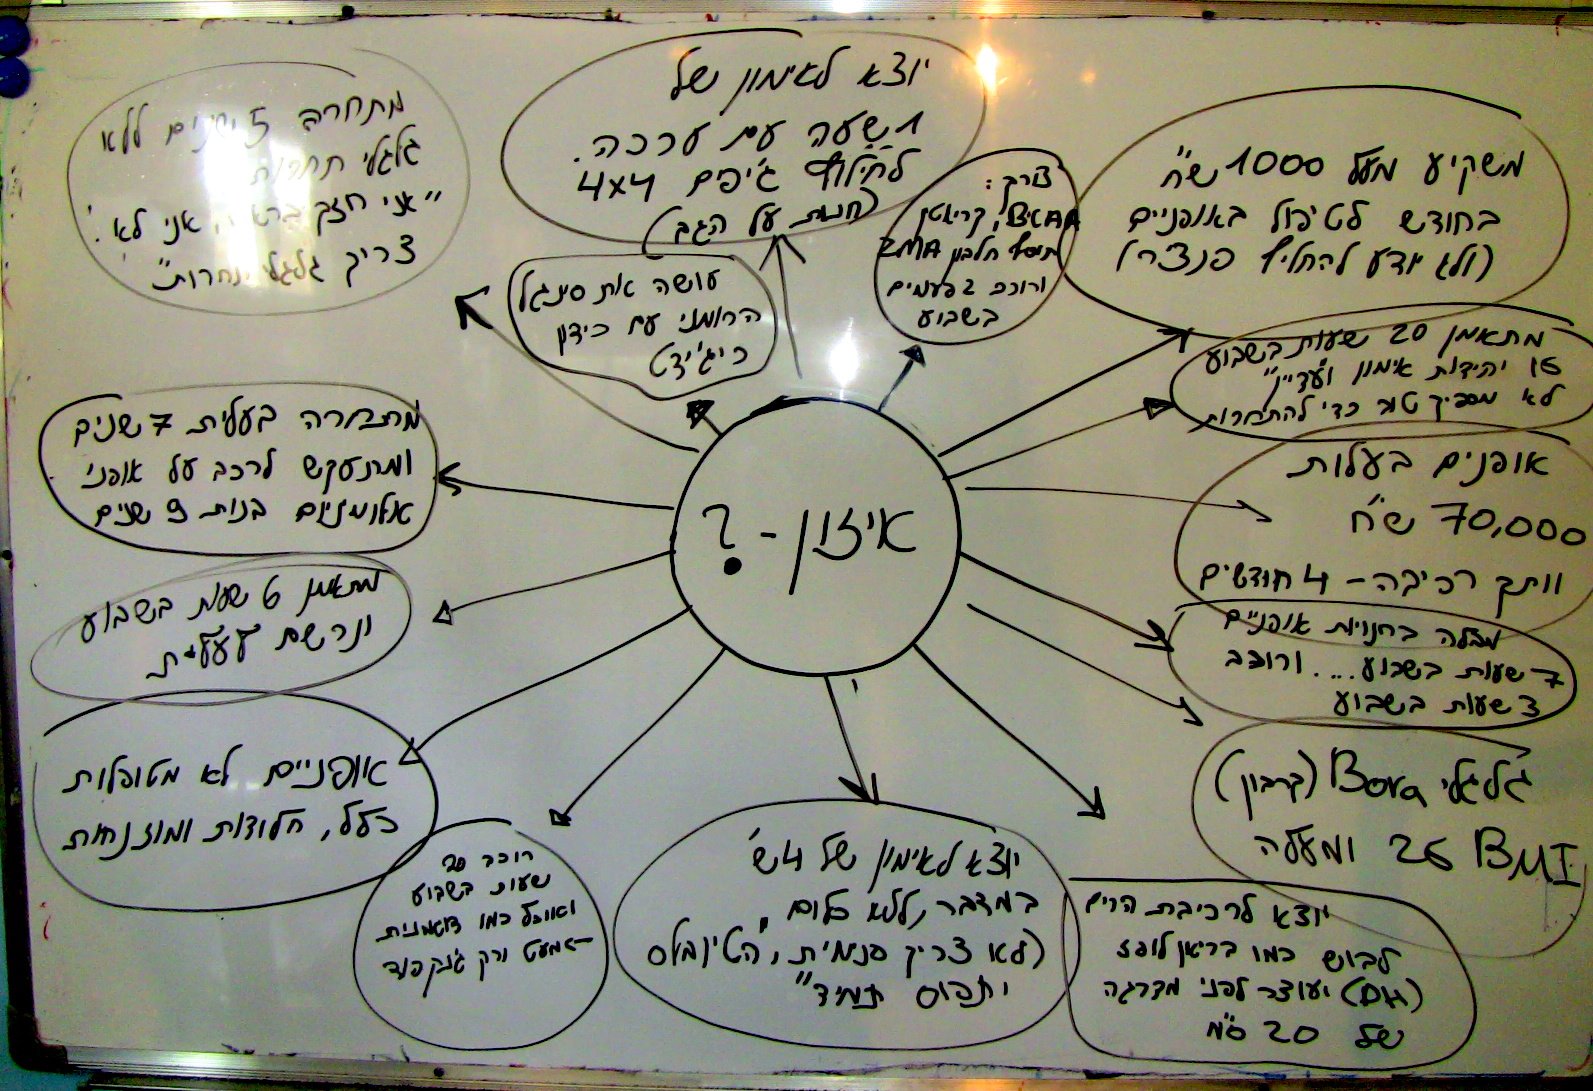 איזון - ?
יוצא לאימון של
1 שעה עם ערכה
לחילוף ג'יפים 4x4
(חנות על הגב)
צורך:
BCAA, קריאטין
תוסף חלבון ZMA
ורוכב 2 פעמים
בשבוע
משקיע מעל 1000 ש"ח
בחודש לטיפול באופניים
(ולא יודע להחליף פנצ'ר)
מתאמן 20 שעות בשבוע
16 יחידות אימון ו"עדיין"
לא מספיק טוב כדי להתחרות
אופנים בעלות
70,000 ש"ח
וותק רכיבה - 4 חודשים
מבלה בחנויות אופניים
7 שעות בשבוע.... ורוכב
3 שעות בשבוע
גלגלי Bora (קרבון)
BMI 26 ומעלה
יוצא לרכיבת הרים
לבוש כמו בריאן לופז
(DH) ועוצר לפני מדרגה
של 20 ס"מ
יוצא לאימון של 4 ש'
במדבר, ללא כלום
(לא צריך פנימית, "הטיובלס
יתפוס תמיד"
רוכב 20
שעות בשבוע
ואוכל כמו דוגמנית
כמעט ורק ג'נק פוד
אופניים לא מטופלות
כלל, חלודות ומוזנחות
מתאמן 6 שעות בשבוע
ונרשם
מתחרה בעלית 7 שנים
ומתעקש לרכב על אופני
אלומיניום בנות 9 שנים
מתחרה 5 שנים ללא
גלגלי תחרות
"אני חזק אני לא
צריך גלגלי תחרות"
עושה את סינגל
הרומני עם כידון
ריג'ידט